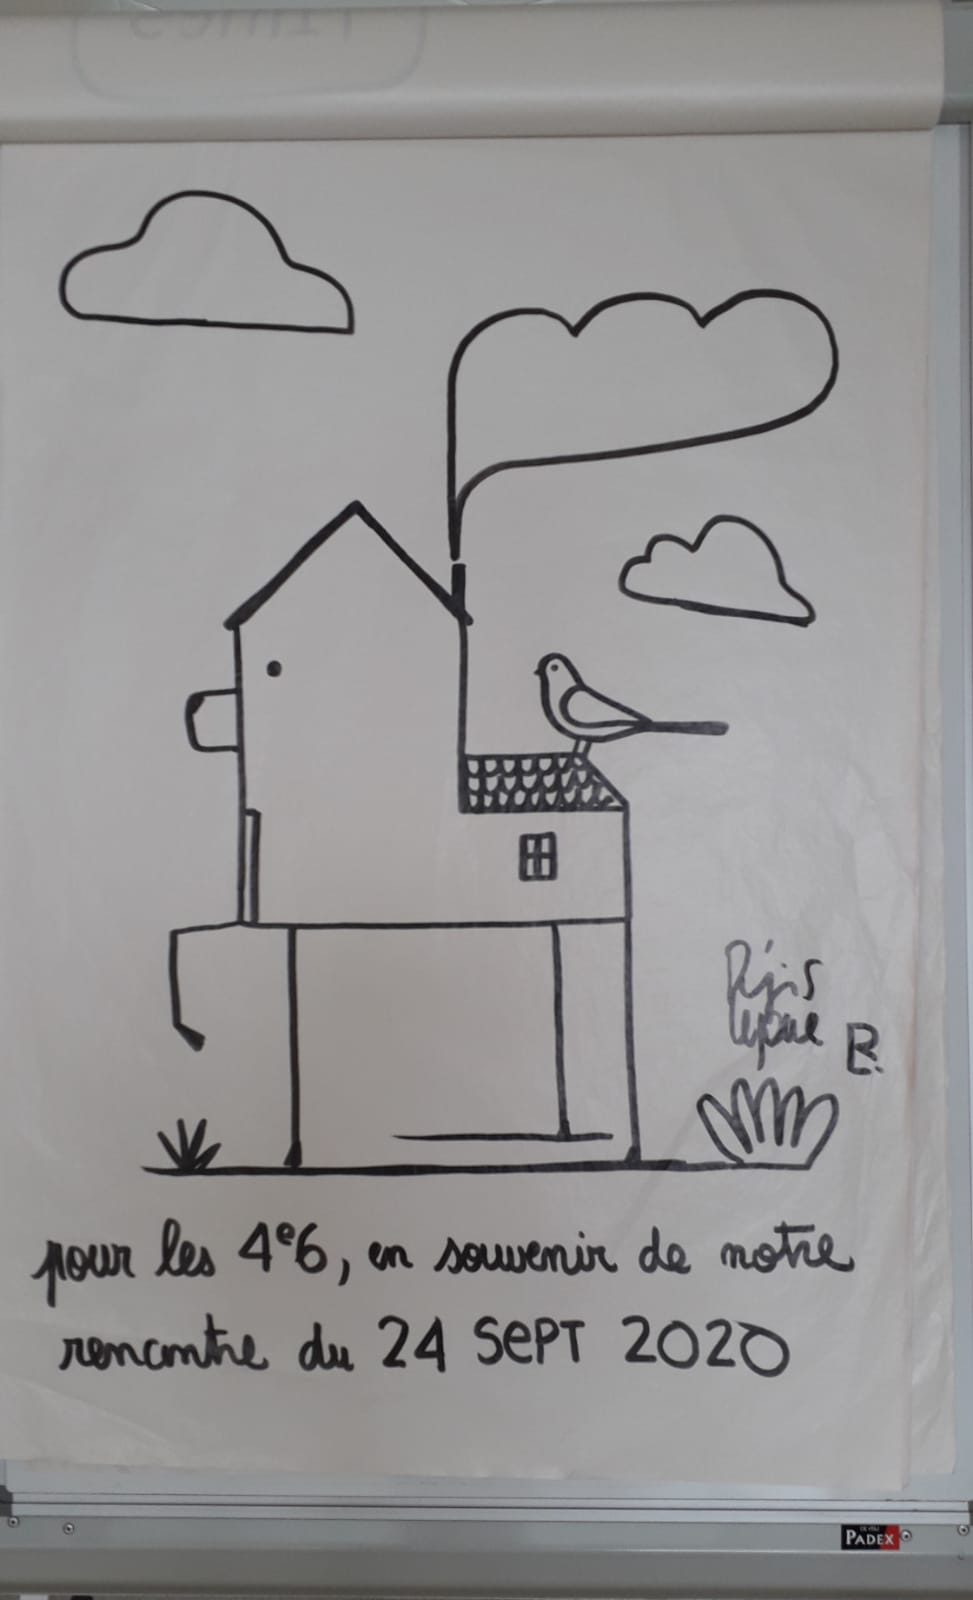 Régis
Lejonc
B.
pour les 4e6, en souvenir de notre
rencontre du 24 SEPT 2020
PADEX